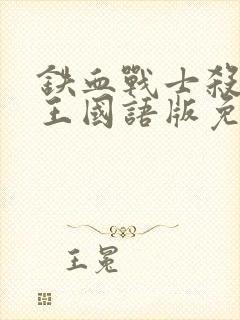 鉄血戰士殺
王國語版免
王冕